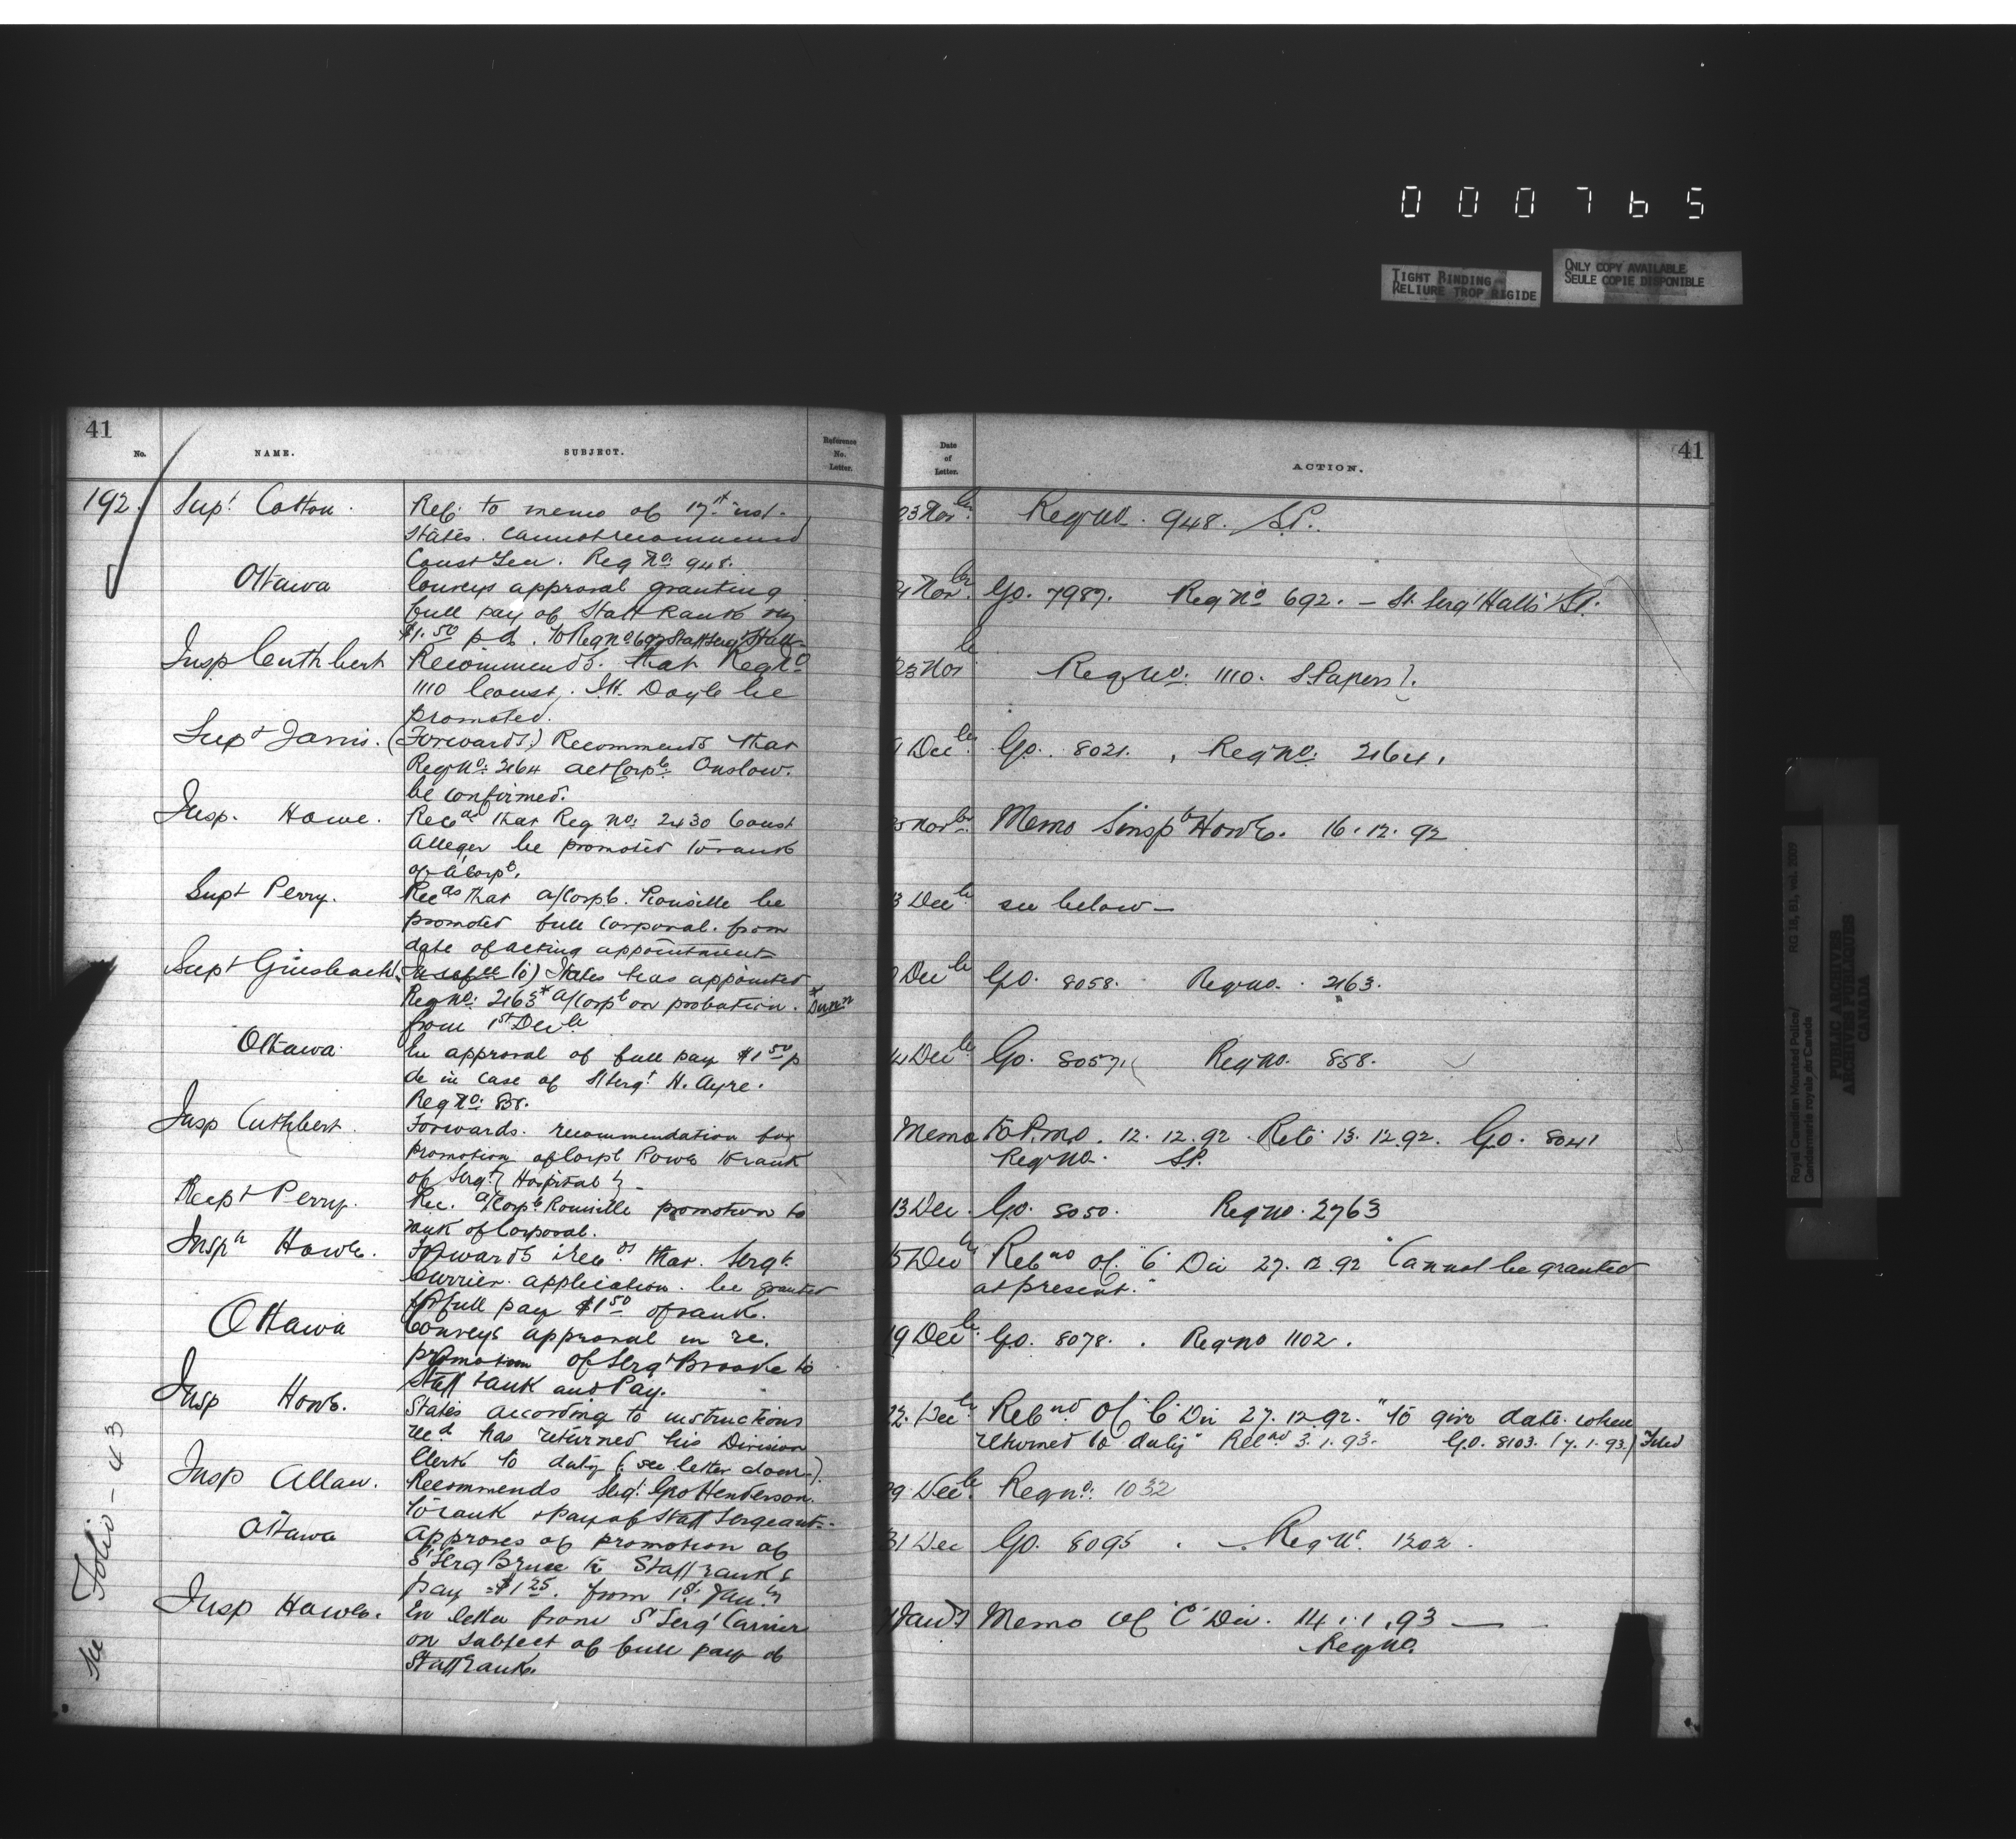 000765
TIGHT BINDING
RELIURE TROP RIGIDE
ONLY COPY AVAILABLE
SEULE COPIE DISPONIBLE
41
No.
NAME.
SUBJECT.
Reference No. Letter.
Date of Letter.
ACTION.
41
192. Supt Cotton.
Ref. to memo of 17th inst.
States. Cannot recommend
Const Reg No: 948.
23 Novbr. Reg no. 948. S.P.
Ottawa
Conveys approval granting
full pay of Staff Rank viz
$1.50 p d. to Reg no 692 Staff Sergt Hall
Novbr. G.O. 7987. Reg No 692. — St. Sergt Halls S.P.
Insp Cuthbert
Recommends. that Reg No
1110 Const. Doyle be
promoted.
23 Nov Reg No: 1110. S. Papers.
Supt Jarvis.
(Forwards) Recommends that
Reg No: 2164 act Corpl Onslow.
be confirmed.
Decbr. G.O. 8021. Reg no: 2164.
Insp. Howe.
that Reg no: 2430 Const
Alleger be promoted to rank
of a/Corpl.
Novbr. Memo Howe. 16.12.92
Supt Perry.
that a/Corpl. Rouville be
promoted full Corporal. from
date of acting appointment
3 Decbr see below —
Supt Griesbach
States has appointed
Reg No: 2163* a/Corpl on probation.
from 1st Decbr
Decbr G.O. 8058. Reg no. 2163.
Ottawa
In approval of full pay $1.50 p
de in case of S/Sergt H. Ayre.
Reg No: 858.
Decbr G.O. 8057. Reg no. 858.
Insp Cuthbert.
Forwards. recommendation for
promotion of Corpl Rowe to rank
of Sergt (Hospital) –
Memo to P.M.O. 12.12.92 Retd 13.12.92. G.O. 8041
Reg No. S.P.
Supt Perry.
Rec. a/Corpl Rouville promotion to
rank of Corporal.
13 Dec. G.O. 8050. Reg no. 2763
Inspr Howe.
Forwards that. Sergt.
Currier. application. be granted
for full pay $1.50 of rank.
Decbr of "C" Div 27.12.92 "Cannot be granted
at present."
Ottawa
Conveys approval in re.
promotion of Sergt Brooke to
Staff rank and Pay.
19 Decbr. G.O. 8078. Reg no 1102.
Insp Howe.
States according to instructions
recd has returned his Division
Clerk to duty (see letter down).
22. Decbr of "C" Div 27.12.92. "to give date when
returned to duty" 3.1.93. G.O. 8103. (7.1.93.) Filed
Insp Allan.
Recommends Sergt. Geo Henderson.
to rank & Pay of Staff Sergeant.
29 Decbr. Reg no: 1032
Ottawa
Approves of promotion of
S/Serg Bruce to Staff rank &
pay $1.25. from 1st. Jany
31 Dec G.O. 8095. Reg No. 1202.
Insp Howe.
En letter from S Sergt Carrier
on subject of full pay of
Staff rank.
Jany Memo Of "C" Div. 14.1.93 —
Reg no.
See Folio – 43
Royal Canadian Mounted Police/
Gendarmerie royale du Canada
RG 18, B1, vol. 2009
PUBLIC ARCHIVES
ARCHIVES PUBLIQUES
CANADA